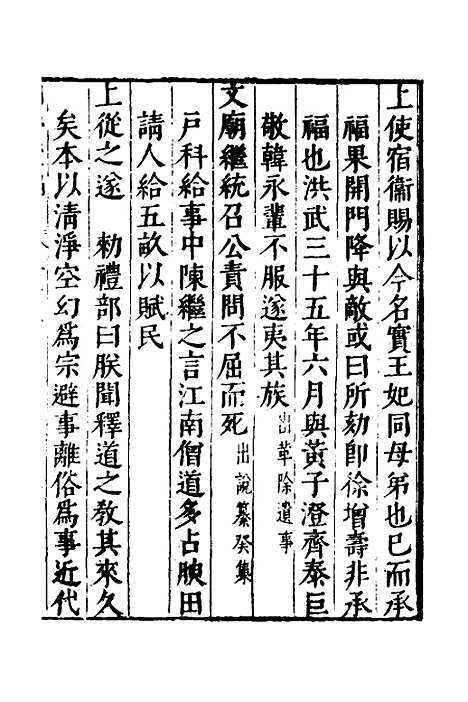 上使宿衞賜以今名實王妃同母弟也已而承
福果開門降與敵或曰所劾卽徐增壽非承
福也洪武三十五年六月與黃子澄齊泰巨
敬韓永輩不服遂夷其族出革除遺事
文廟繼統召公責問不屈而死出說纂癸集
戶科給事中陳繼之言江南僧道多占腴田
請人給五畝以賦民
上從之遂 勑禮部曰朕聞釋道之敎其來久
矣本以清淨空幻爲宗避事離俗爲事近代